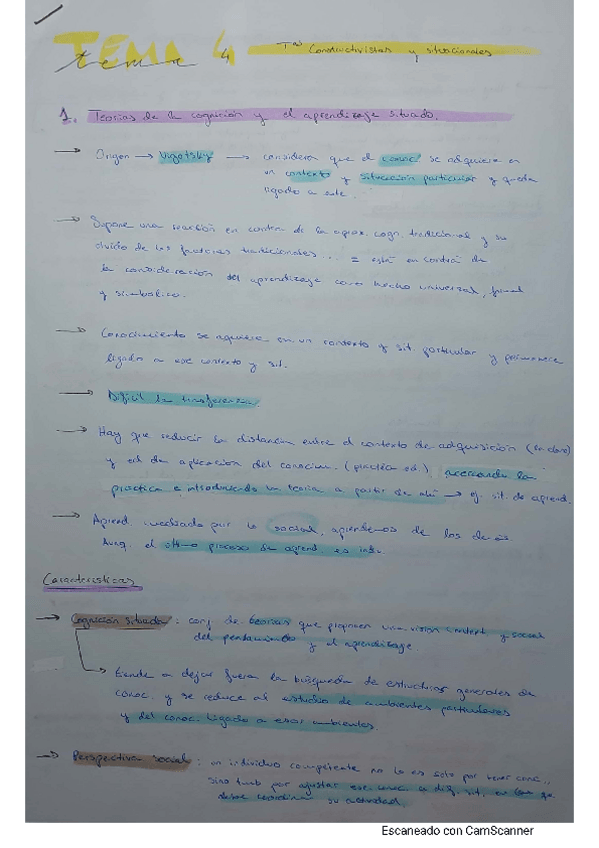 TEMA 4
tema 4 Tas Constructivistas y situacionales
1. Teorías de la cognición y el aprendizaje situado.
→ Origen → Vigotsky → considera que el conoc. se adquiere en
un contexto y situación particular y queda
ligado a este.
→ Supone una reacción en contra de la aprox. cogn. tradicional y su
olvido de los factores tradicionales... = está en contra de
la consideración del aprendizaje como hecho universal, formal
y simbólico.
→ Conocimiento se aquiere en un contexto y sit. particular y permanece
ligado a ese contexto y sit.
→ Difícil la transferencia.
→ Hay que reducir la distancia entre el contexto de adquisición (en clase)
y el de aplicación del conocim. (práctica ), acercando la
práctica e introduciendo la teoría a partir de ahí → ej. sit. de aprend.
→ Aprend. mediado por lo social, aprendemos de los demás
Aunq. el último proceso de aprend. es indv.
Características
→ Cognición situada: conj. de teorías que proponen una visión context. y social
del pensamiento y el aprendizaje.
tiende a dejar fuera la búsqueda de estructuras generales de
conoc. y se reduce al estudio de ambientes particulares
y del conoc. ligado a esos ambientes.
→ Perspectiva social: un individuo competente no lo es solo por tener conoc.,
sino tamb por ajustar ese conoc. a dif. sit. en las que
debe coordinar su actividad.
Escaneado con CamScanner